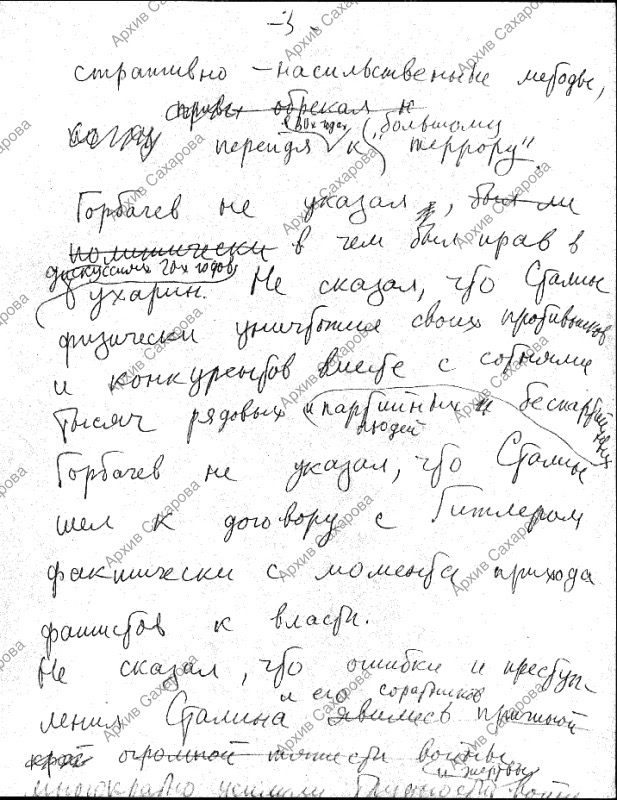 -3.
стративно-насильственные методы,
обрекал и
когда перейдя в 30х годах к "большому
террору".
Горбачев не указал, был ли
политически в чем был прав в
дискуссиях 20х годов
Бухарин. Не сказал, что Сталин
физически уничтожил своих противников
и конкурентов вместе с сотнями
тысяч рядовых партийных и беспартийных
людей
Горбачев не указал, что Сталин
шел к договору с Гитлером
фактически с момента прихода
фашистов к власти.
Не сказал, что ошибки и преступ-
и его соратников
ления Сталина явились причиной
огромной тяжести войны
и жертвы
многократно усилили
Архив Сахарова